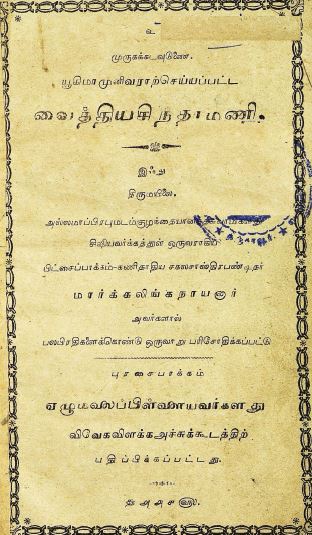 உ
முருகக்கடவுடுணை.
யூகிமாமுனிவராற்செய்யப்பட்ட
வைத்தியசிந்தாமணி.
இஃது
திருமயிலை,
அல்லமாப்பிரபுமடம்குழந்தையானந்தசுவாமிகளது
சிஷியவர்க்கத்துள் ஒருவராகிய
பிட்சைப்பாக்கம்-கணிதாதிய சகலசாஸ்திரபண்டிதர்
மார்க்கலிங்கநாயனார்
அவர்களால்
பலபிரதிகளைக்கொண்டு ஒருவாறு பரிசோதிக்கப்பட்டு
புரசைபாக்கம்
ஏழுமலைப்பிள்ளையவர்களது
விவேகவிளக்கஅச்சுக்கூடத்திற்
பதிப்பிக்கப்பட்டது.